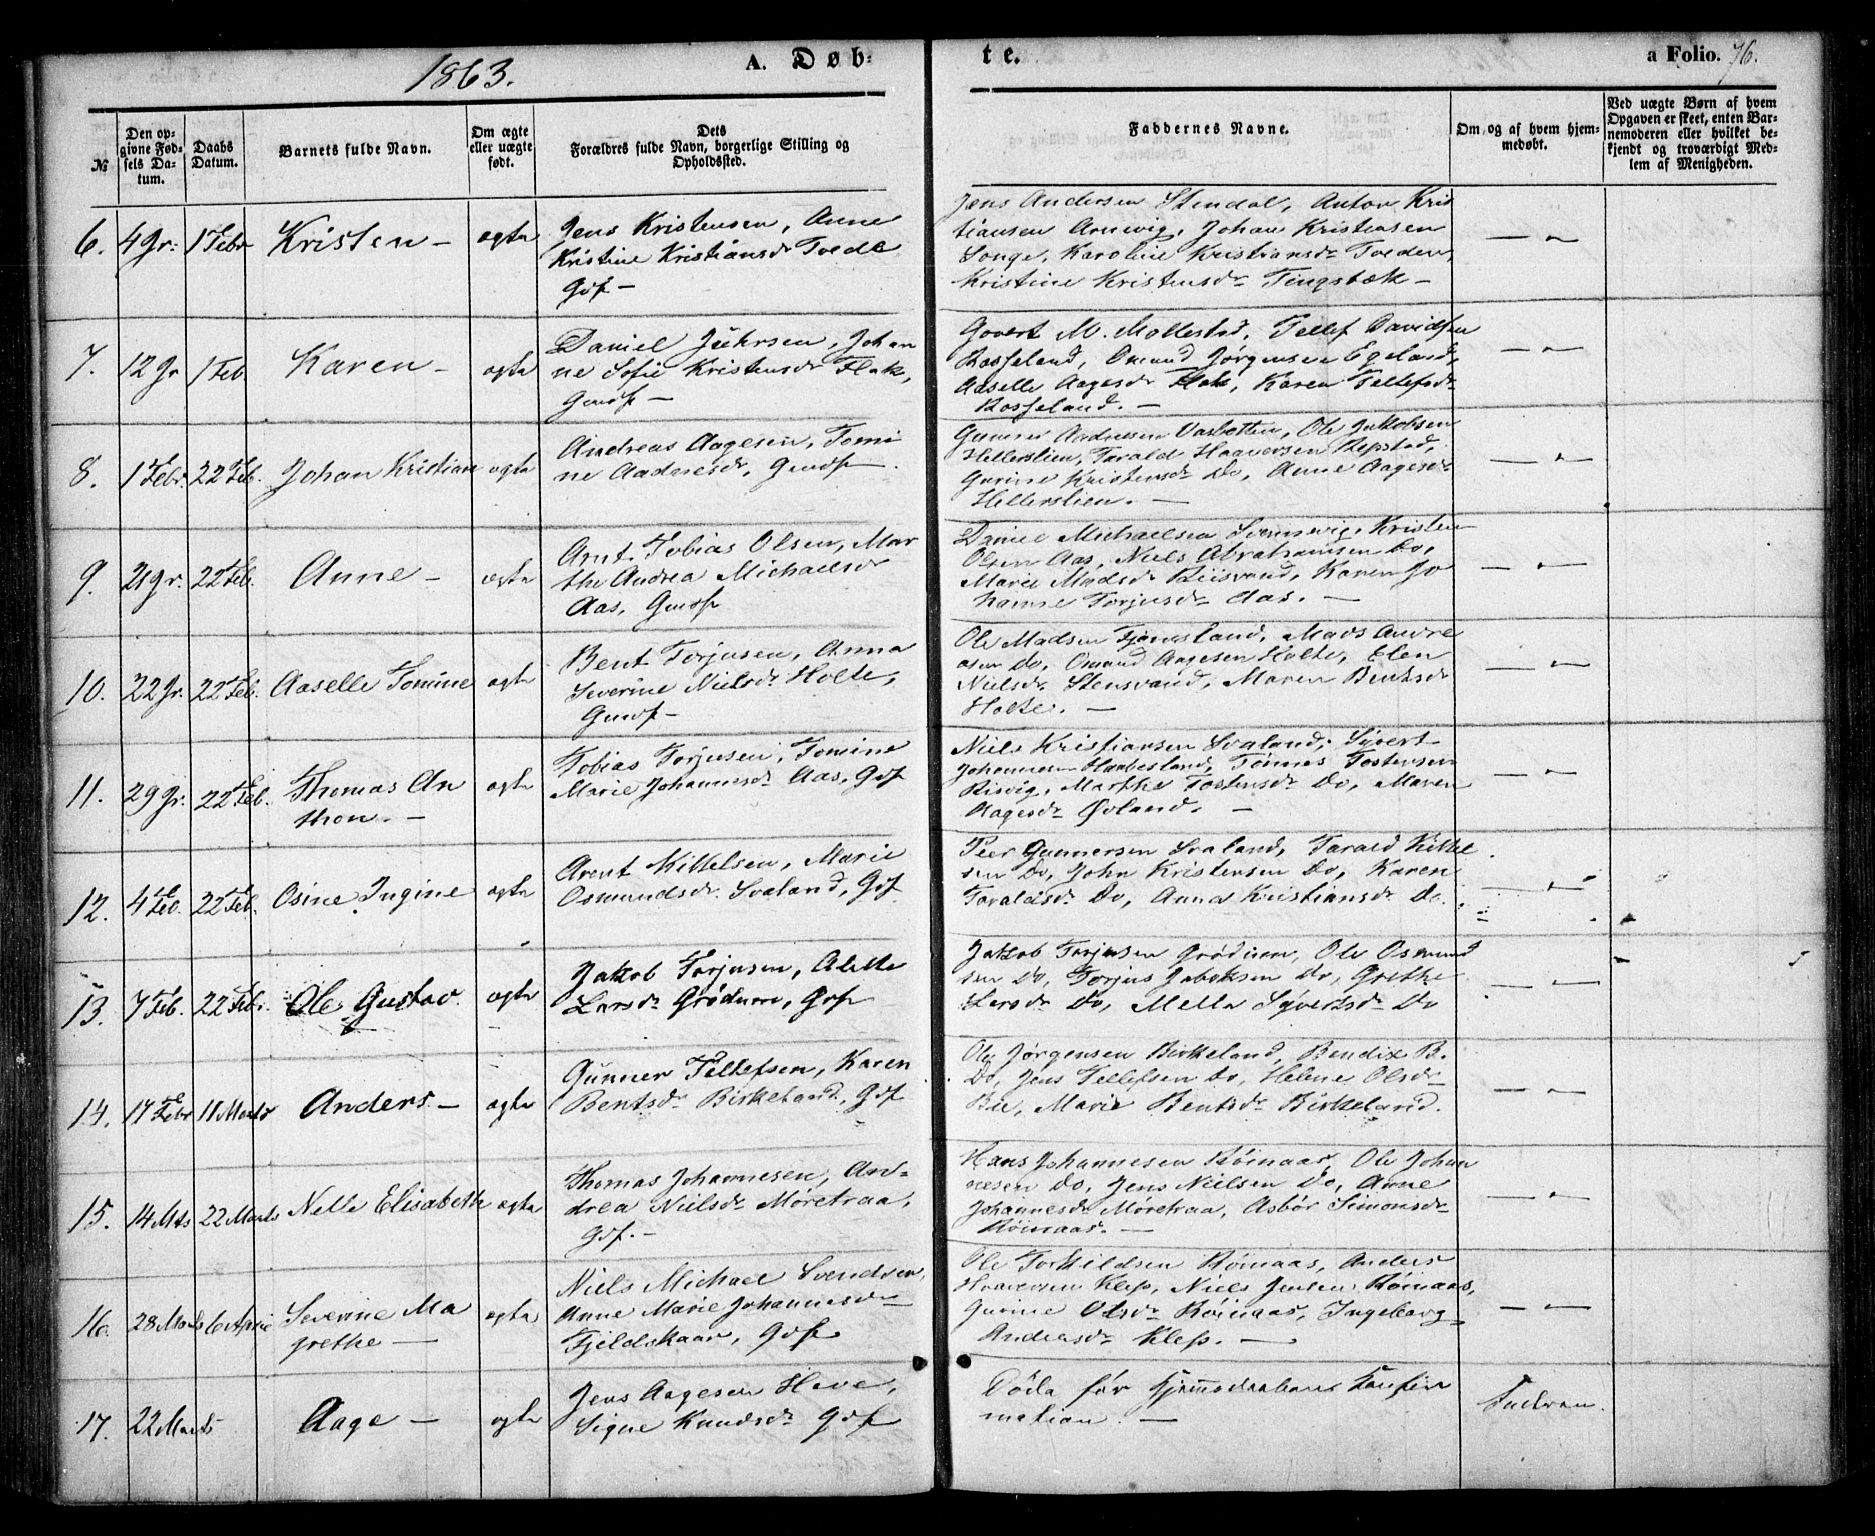 1863.
A. Døb-
te.
a Folio. 76.
№
Den op-
givne Fød-
sels Da-
tum.
Daabs
Datum.
Barnets fulde Navn.
Om ægte
eller uægte
født.
Dets
Forældres fulde Navn, borgerlige Stilling og
Opholdssted.
Faddernes Navne.
Om og af hvem hjem-
medøbt.
Ved uægte Børn af hvem
Opgaven er skeet, enten Bar-
nemoderen eller hvilket be-
kjendt og troværdigt Med-
lem af Menigheden.
6. 4 Jr: 1 Febr Kristen – ægte
Jens Kristensen, Anne
Kristine Kristiansdr Tvede
Gdf –
Jens Andersen Stendal, Anton Kris
tiansen Arnevig, Johan Kristensen
Songe, Karoline Kristiansdr Tveden,
Kristine Kristensdr Tingsbæk –
7. 12 Jr 1 Feb. Karen – ægte
Daniel Jührsen, Johan
ne Sofie Kristensdr Flak,
Gmdf –
Govert M. Mollestad, Tellef Davidsen
Rosseland, Omund Jörgensen Egeland,
Aaselle Aagesdr Flak, Karen Tellefsdr
Rosseland. –
8. 1 Febr. 22 Feb. Johan Kristian ægte
Andreas Aagesen, Tomi
ne Aadnesdr, Gmdf
Gunner Aadnesen Vasbotten, Ole Jakobsen
Hellerslien, Torald Haaversen Repstad,
Gurine Kristensdr Do, Anne Aagesdr
Hellerslien. –
9. 21 Jr. 22 Feb. Anne – ægte
Arnt Tobias Olsen, Mar
the Andrea Michaelsdr
Aas, Gmdf
Daniel Michaelsen Svennevig, Kristen
Olsen Aas, Niels Abrahamsen Do,
Marie Madsdr Reisvand, Karen Jo
hanne Torjusdr Aas. –
10. 22 Jr. 22 Feb. Aaselle Tomine ægte
Bent Torjusen, Anna
Severine Nielsdr Holte,
Gmdf –
Ole Madsen Tjomsland, Mads Andre
asen Do, Omund Aagesen Holte, Elen
Nielsdr Stensvand, Maren Bentsdr
Holte. –
11. 29 Jr. 22 Feb. Thomas An
thon. – ægte
Tobias Torjusen, Tomine
Marie Johannesdr Aas, Gdf
Niels Kristiansen Svaland, Syvert
Johannesen Haabesland, Tönnes Tostensen
Risvig, Marthe Tostensdr Do, Maren
Aagesdr Øvland. –
12. 4 Feb. 22 Feb. Osine Ingine ægte
Arent Kittelsen, Marie
Osmundsdr Svaland, Gdf
Peer Gunnersen Svaland, Tarald Kittel
sen Do, John Kristensen Do, Karen
Taraldsdr Do, Anna Kristiansdr Do.
13. 7 Feb. 22 Febr. Ole Gustav. ægte
Jakob Torjusen, Alette
Larsdr Grödum, Gdf
Jakob Torjusen Grödum, Ole Osmund
sen Do, Torjus Jakobsen Do, Grethe
Larsdr Do, Mella Syvertsdr Do
14. 17 Febr 11 Marts Anders – ægte
Gunner Tellefsen, Karen
Bentsdr Birkeland, Gdf
Ole Jørgensen Birkeland, Bendix B.
Do, Jens Tellefsen Do, Helene Olsdr
Bie, Marie Bentsdr Birkeland.
15. 14 Mts 22 Marts Nelle Elisabeth ægte
Thomas Johannesen, An-
drea Nielsdr Møretraa,
Gdf. –
Hans Johannesen Röinaas, Ole Johan
nesen Do, Jens Nielsen Do, Anne
Johannesdr Møretraa, Asbör Simonsdr
Röinaas. –
16. 28 Marts 6 April Severine Ma
grethe – ægte
Niels Michael Svendsen,
Anne Marie Johannesdr
Fjeldskaar, Gdf
Ole Torkildsen Röinaas, Anders
Haaversen Klep, Niels Jensen Röinaas,
Gurine Olsdr Röinaas, Ingeborg
Andersdr Klep. –
17. 22 Marts Aage – ægte
Jens Aagesen Heve,
Signe Knudsdr Gdf
Döde för Hjemmedaabens Konfir
mation. – Faderen.